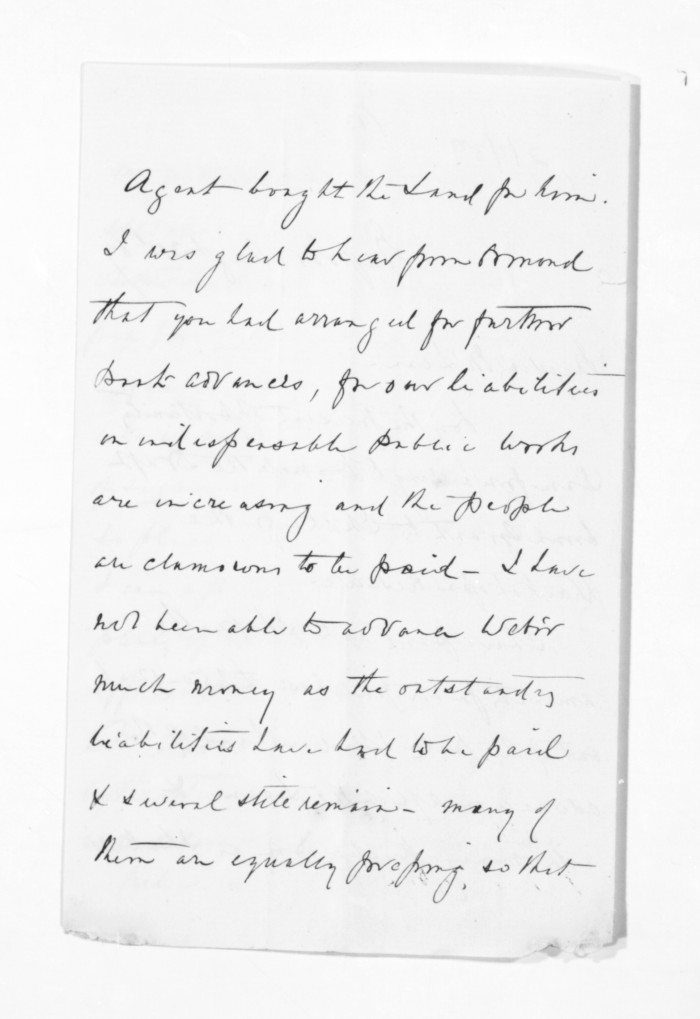 Agent bought the Land for him.
I was glad to hear from Ormond
that you had arranged for further
Bank advances, for our liabilities
on indispensable public works
are increasing and the people
are clamorous to be paid – I have
not been able to advance Weber
much money as the outstanding
liabilities have had to be paid
& several still remain – many of
them are equally pressing, so that